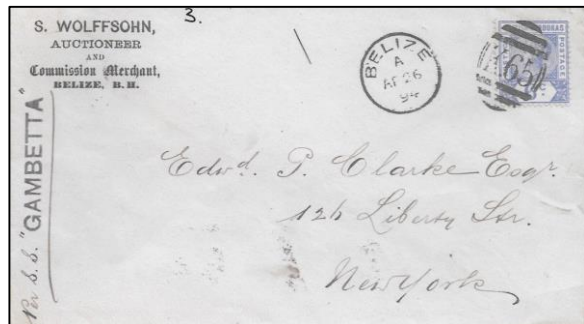 3.
S. WOLFFSOHN,
AUCTIONEER
AND
Commission Merchant,
BELIZE, B. H.
BELIZE
A
AP 26
94
65
POSTAGE
Edwd. P. Clarke Esqr.
126 Liberty Str.
New York
Per S.S. "GAMBETTA"